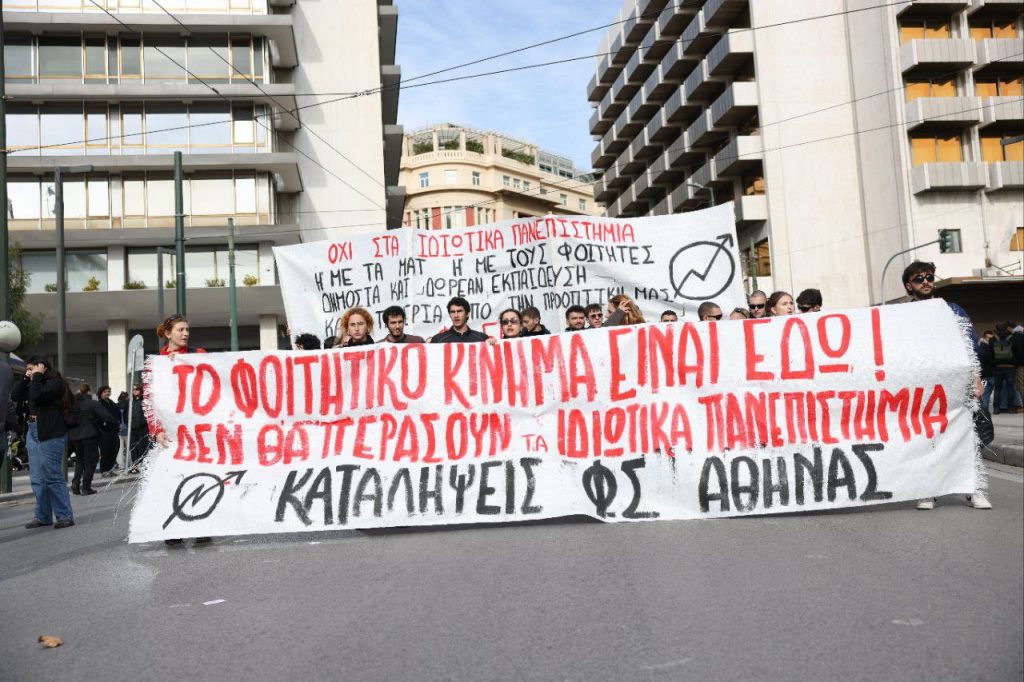 ΟΧΙ ΣΤΑ ΙΔΙΩΤΙΚΑ ΠΑΝΕΠΙΣΤΗΜΙΑ
Ή ΜΕ ΤΑ ΜΑΤ Ή ΜΕ ΤΟΥΣ ΦΟΙΤΗΤΕΣ
ΔΗΜΟΣΙΑ ΚΑΙ ΔΩΡΕΑΝ ΕΚΠΑΙΔΕΥΣΗ
ΑΠΟ ΤΗΝ ΠΡΟΟΠΤΙΚΗ ΜΑΣ
ΤΟ ΦΟΙΤΗΤΙΚΟ ΚΙΝΗΜΑ ΕΙΝΑΙ ΕΔΩ!
ΔΕΝ ΘΑ ΠΕΡΑΣΟΥΝ ΤΑ ΙΔΙΩΤΙΚΑ ΠΑΝΕΠΙΣΤΗΜΙΑ
ΚΑΤΑΛΗΨΕΙΣ ΦΣ ΑΘΗΝΑΣ